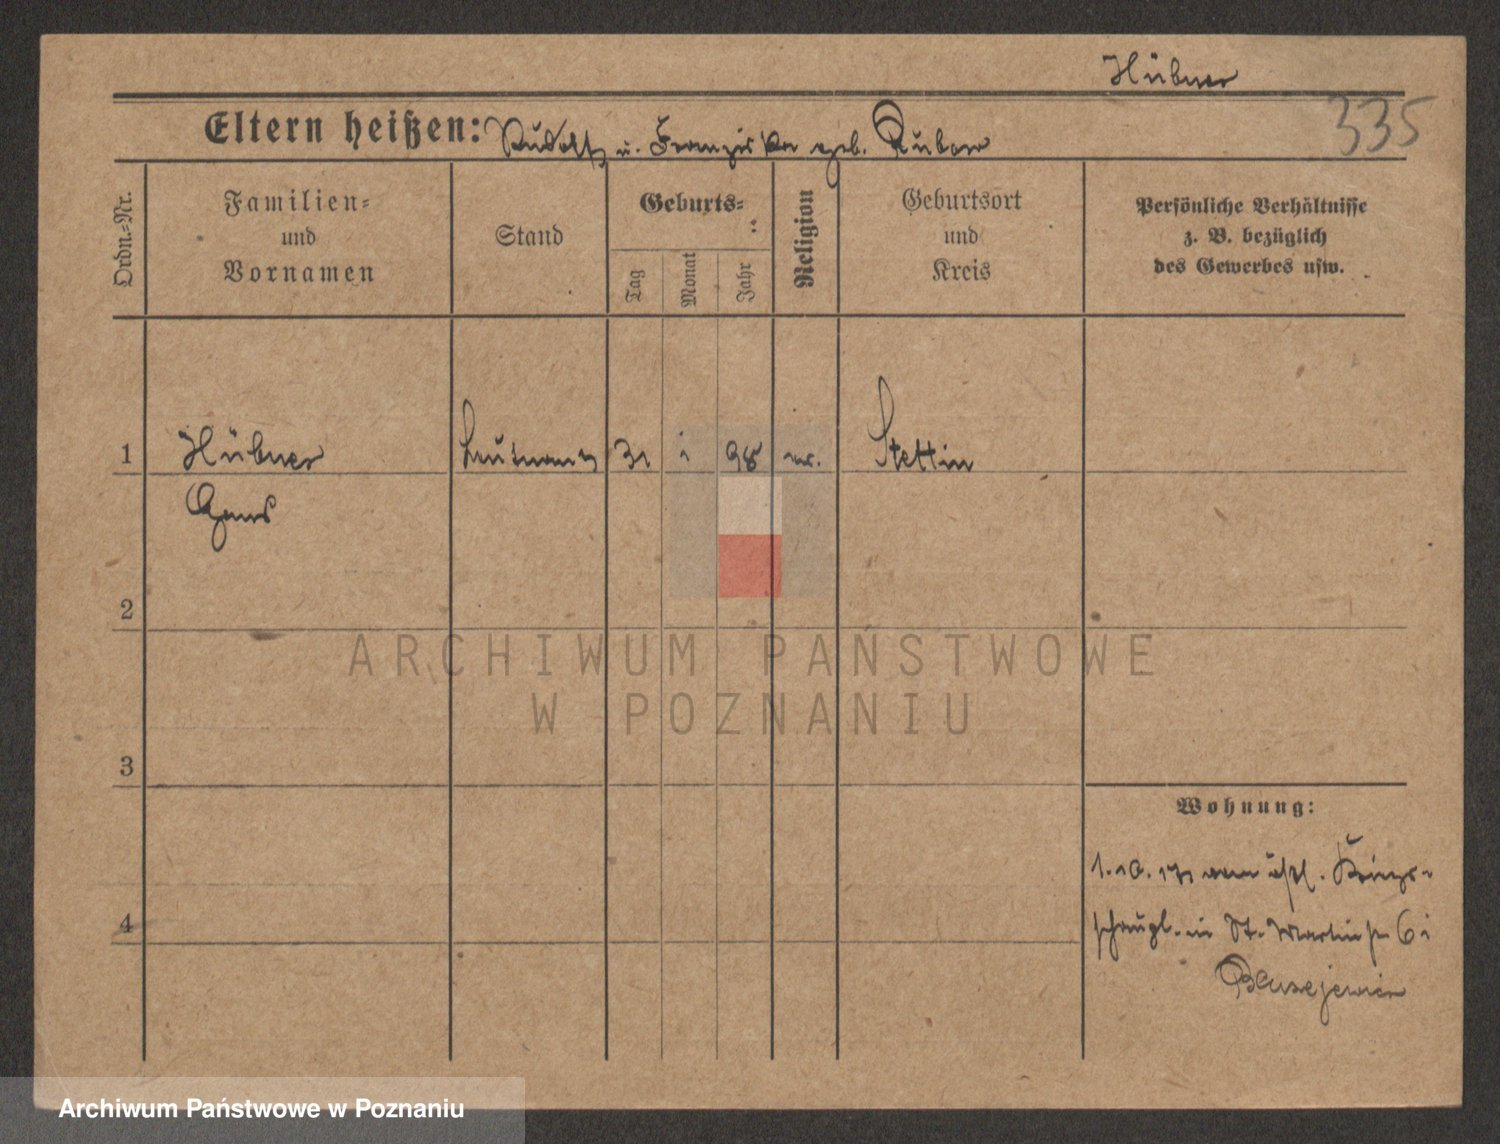 Hübner
335
Eltern heißen: Rudolf u. Franziska geb. Rubow
Ordn.-Nr.
Familien-
und
Vornamen
Stand
Geburts-
Tag
Monat
Jahr
Religion
Geburtsort
und
Kreis
Persönliche Verhältnisse
z. B. bezüglich
des Gewerbes usw.
1 Hübner Leutnant 31 i 98 ev. Stettin
Hans
2
ARCHIWUM PAŃSTWOWE
W POZNANIU
3
Wohnung:
1. 10. 17 vom östl. Kriegs-
4
schaupl. in St. Martinstr 6 i
Archiwum Państwowe w Poznaniu